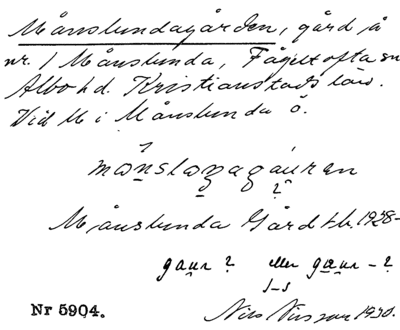 Månslundagården, gård å
nr. 1 Månslunda, Fågeltofta sn
Albo hd. Kristianstads län.
Vid M i Månslunda ö.
Månslunda Gård tb. 1928-
gaur ? eller gæur - ?
Nr 5904. Nils Nilsson 1930.